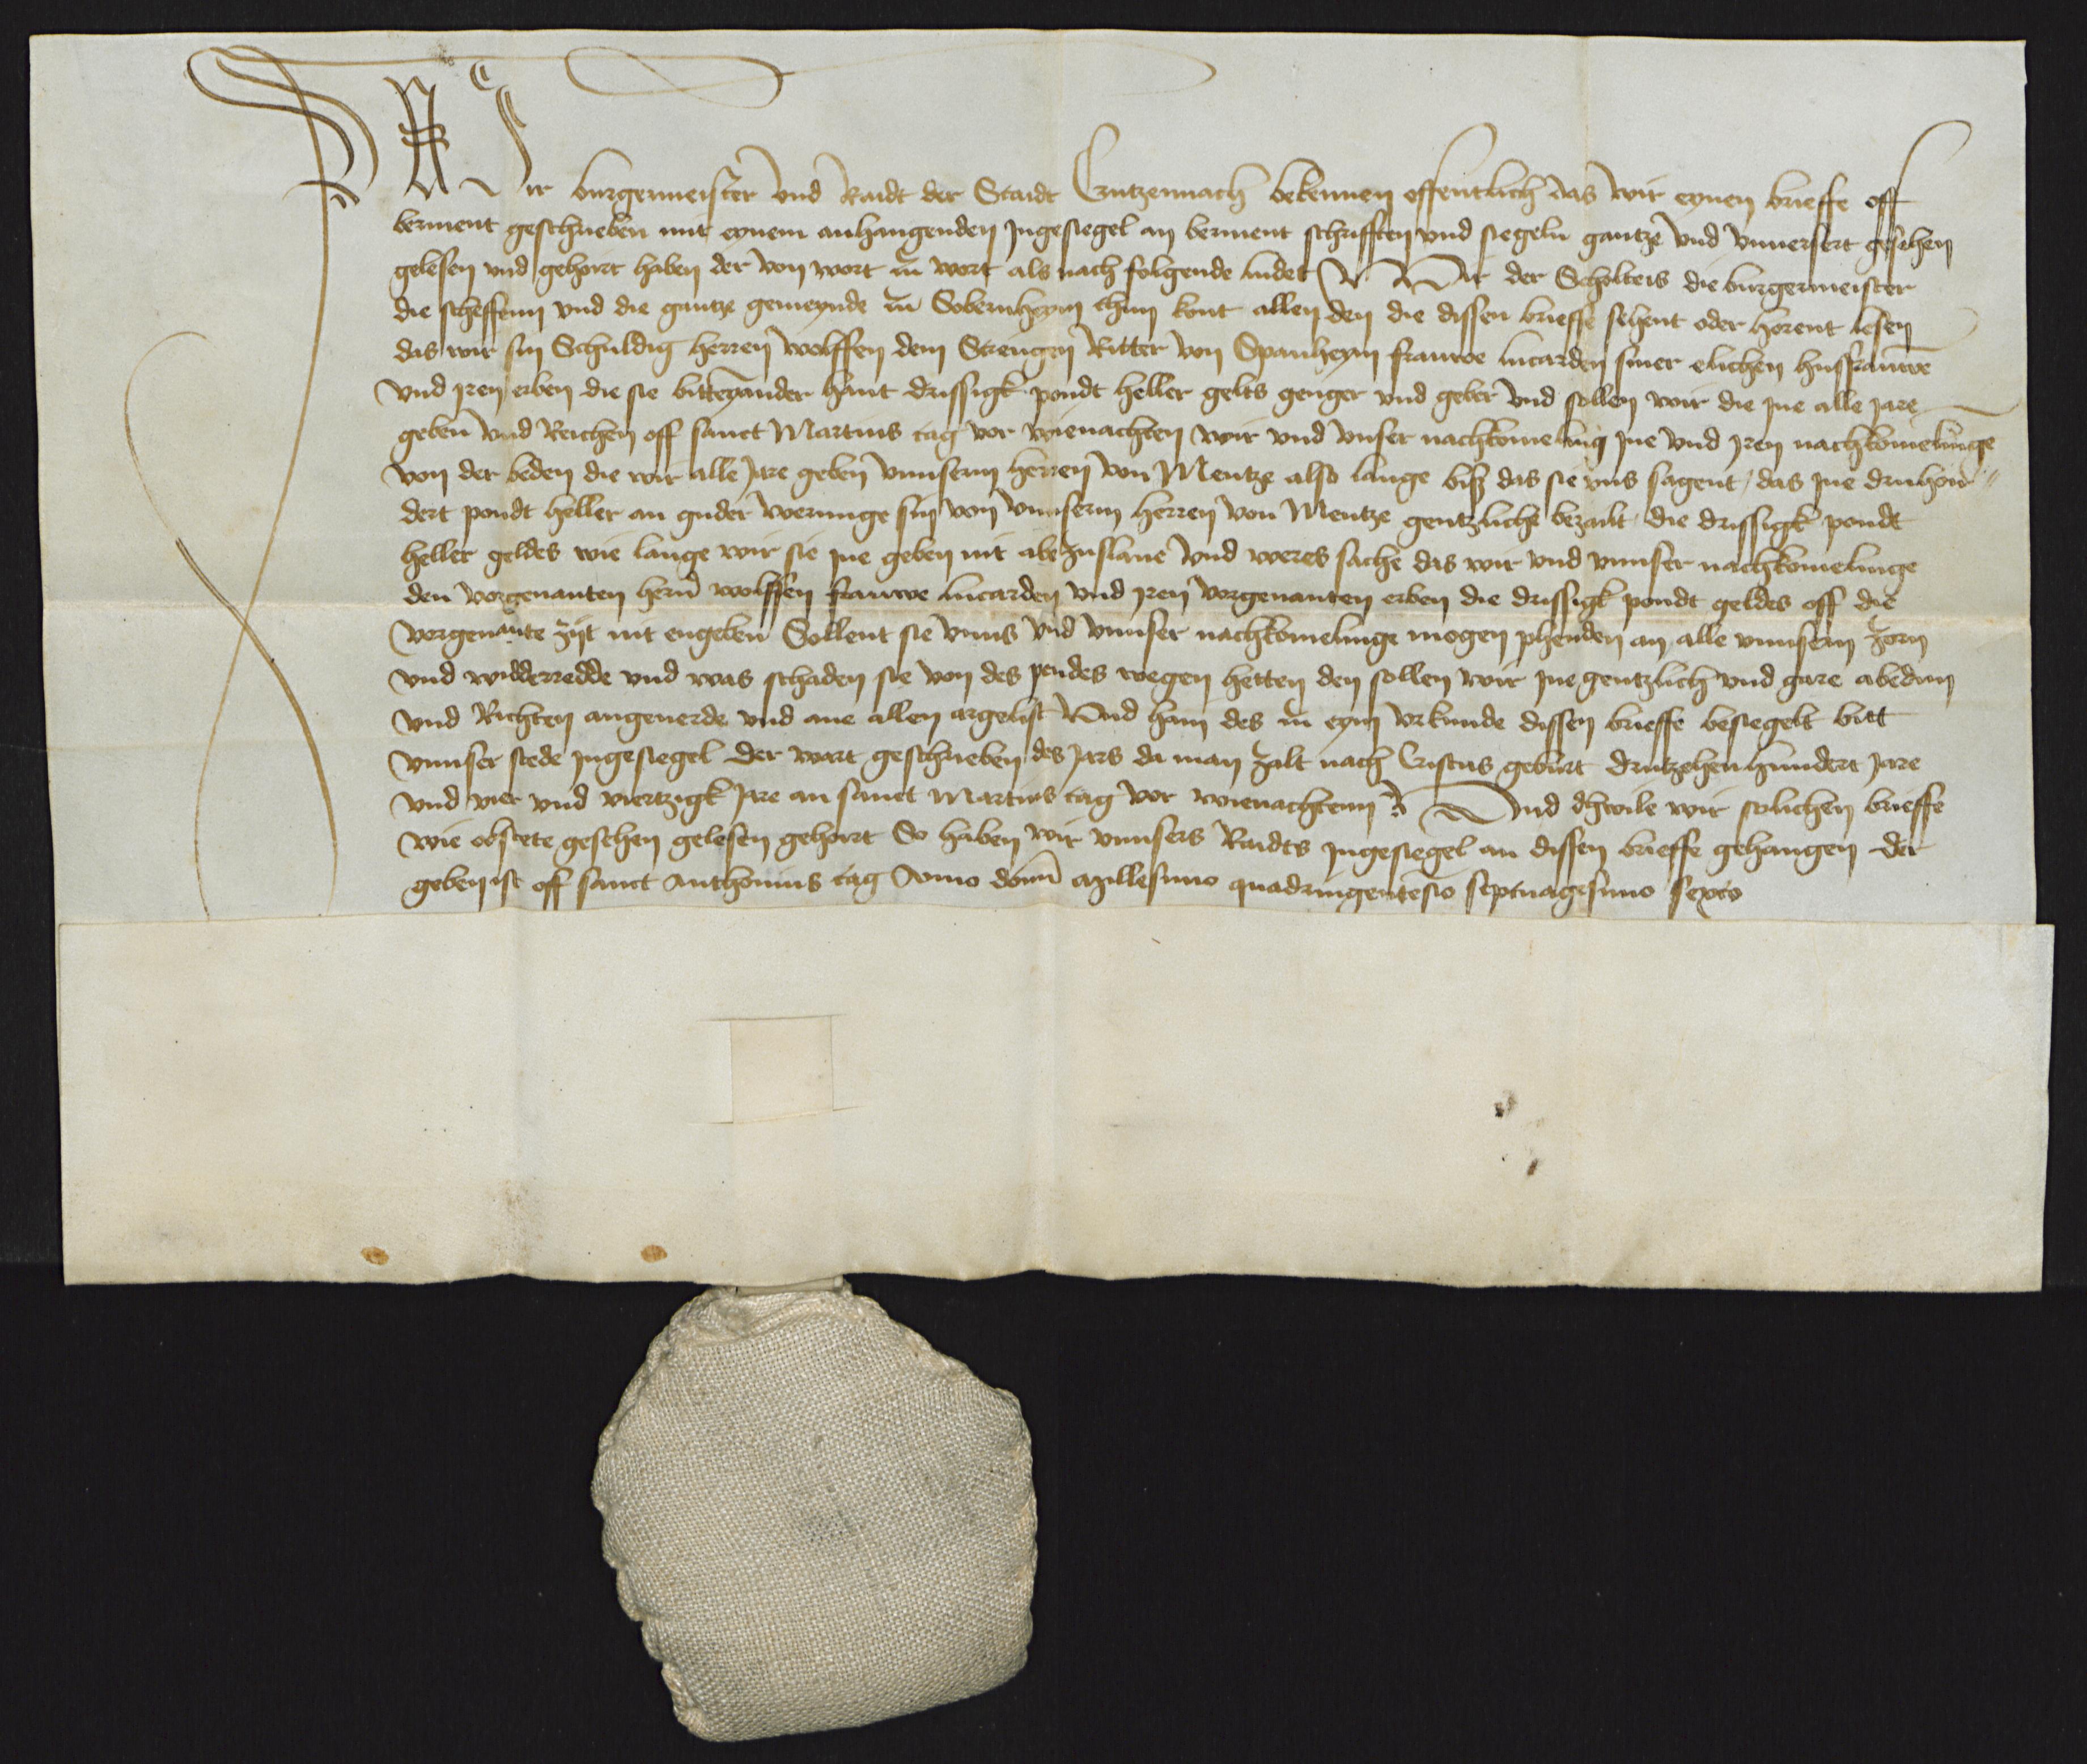 WIr burgermeister vnd Raidt der Staidt Crutzennach bekennen offentlich das wir eynen brieffe off
berment geschrieben mit eynem anhangenden Jngesiegel an berment schrifften vnd siegeln gantze vnd vnuersert gesehen
gelesen vnd gehort haben der von wort zu wort als nach folgende ludet Wir der Scholteis die burgermeister
die scheffenn vnd die gantze gemeynde zu Sobernheym thun kont allen den die dissen brieffe sehent oder horent lesen
das wir sin Schuldig herren wolffen dem Strengen Ritter von Spanheym frauwe lucarden siner elichen husfrauwe
vnd jren erben die sie bitteynander hant drissigk pondt heller gelts genger vnd geber vnd sollen wir die jne alle jare
geben vnd Reichen off sanct Martins tag vor wienachten wir vnd vnser nachkomeling jne vnd jren nachkomelinge
von der beden die wir alle Jare geben vnnserm herren von Mentze also lange bisz das sie vns sagent / das jne druhon„
dert pondt heller an guder werunge sin von vnnserm herren von Mentze gentzliche bezailt die drissigk pondt
heller geldes wie lange wir sie jne geben nit abe zuslane vnd weres sache das wir vnd vnnser nachkomelinge
den vorgenanten hern wolffen frauwe lucarden vnd jren vorgenanten erben die drissigk pondt geldes off die
vorgenante zijt nit engeben Sollent sie vnns vnd vnnser nachkomelinge mogen phenden an alle vnnsern zorn
vnd widderredde vnd was schaden sie von des pendes wegen hetten den sollen wir jne gentzlich vnd gare abedun
vnd Richten angeuerde vnd ane allen argelist Vnd han des zu eym vrkunde dissen brieffe besiegelt bitt
vnnser stede jngesiegel Der wart geschrieben des Jars da man zalt nach Cristus geburt drutzehenhundert Jare
vnd vier vnd viertzigk Jare an sanct Martins tag vor wienachtenn Vnd dhwile wir solichen brieffe
wie obstete gesehen gelesen gehort So haben wir vnnsers Raidts jngesiegel an dissen brieffe gehangen Der
geben ist off sanct Anthonius tag Anno domi millesimo quadringentesio septuagesimo sexto